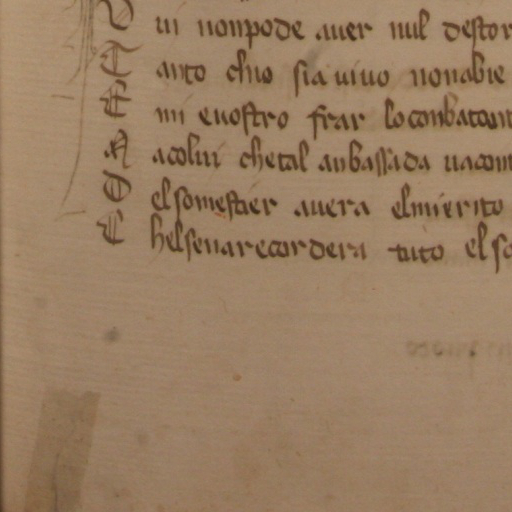 D ui nonpode auer nul destor
T anto chio sia uiuo nonabie
E mi euostro frar lo conbatant
A acolui chetal anbassada uacont
D el somestier auera elmierito
C helsenarecordera tuto elso